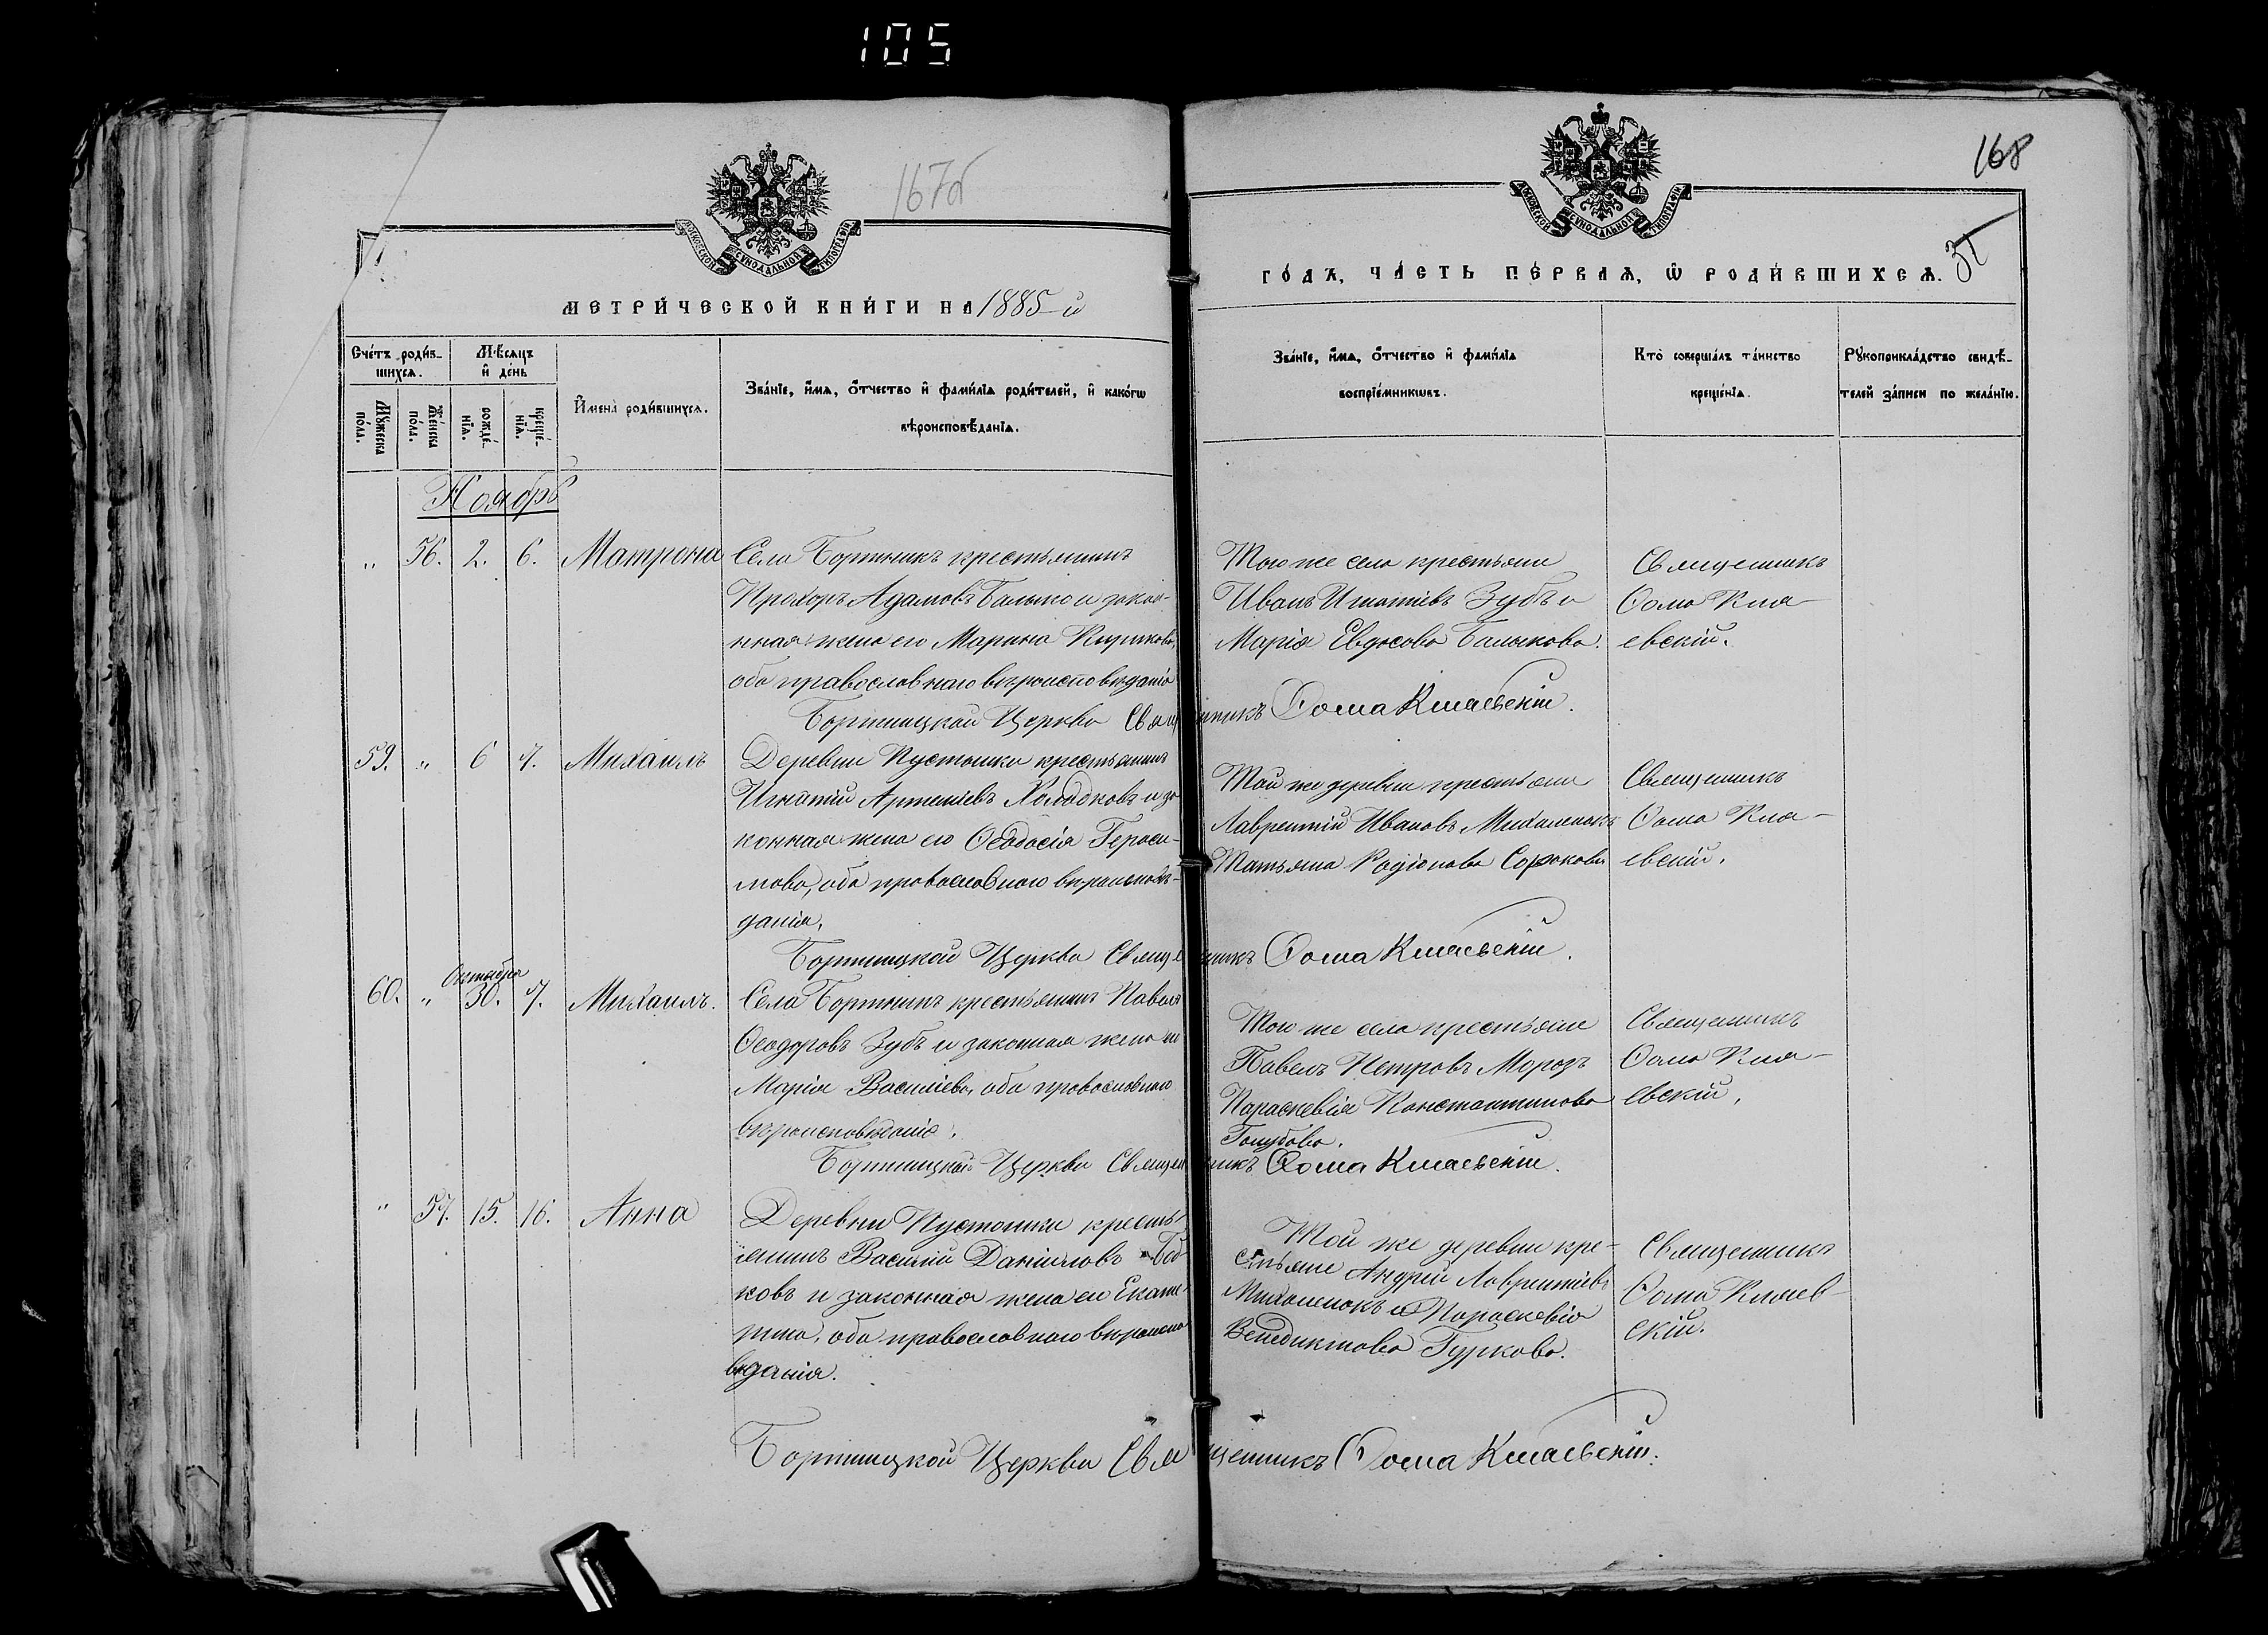 105
167б
168
31
МОСКОВСКОЙ СѴНОДАЛЬНОЙ ТИПОГРАФІИ
МОСКОВСКОЙ СѴНОДАЛЬНОЙ ТИПОГРАФІИ
МЕТРИ́ЧЕСКОЙ КНИ́ГИ НА 1885-й
ГО́ДЪ, ЧА́СТЬ ПЕ́РВАѦ, Ѡ РОДИ́ВШИХСѦ.
Сче́тъ роди́в-
шихсѧ.
Мѣ́сѧцъ
и҆ де́нь
Мꙋ́жеска
по́ла.
Же́нска
по́ла.
рожде́-
нїѧ.
креще́-
нїѧ.
И҆мена̀ роди́вшихсѧ.
Зва́нїе, и҆́мѧ, ѻ҆́тчество и҆ фами́лїѧ роди́телей, и҆ како́гѡ
вѣроисповѣ́данїѧ.
Зва́нїе, и҆́мѧ, ѻ҆́тчество и҆ фами́лїѧ
воспрїе́мникѡвъ.
Кто̀ соверша́лъ та́инство
креще́нїѧ.
Рꙋкоприкла́дство свидѣ́-
телей за́писи по жела́нїю.
Ноябрь
„ 56. 2. 6. Матрона
Села Бортникъ крестьянинъ
Прохоръ Адамовъ и закон-
ная жена его Марина
оба православнаго вѣроисповѣданія
Того же села крестьяне
Иванъ Игнатіевъ Зубъ и
Марія Балыкова.
Священникъ
Ѳома Кна-
евскій.
Бортницкой Церкви Священникъ Ѳома Кнаевскій.
59. „ 6 7. Михаилъ
Деревни Пустошки крестьянинъ
Игнатій Артеміевъ Холодковъ и за
конная жена его Ѳеодосія Гераси-
мова, оба православнаго вѣроисповѣ-
данія.
Той же деревни крестьяне
Лаврентій Ивановъ Михаленокъ
Татьяна Родіонова
Священникъ
Ѳома Кна-
евскій.
Бортницкой Церкви Священникъ Ѳома Кнаевскій.
Октября
60. „ 30. 7. Михаилъ.
Села Бортникъ крестьянинъ Павелъ
Ѳеодоровъ Зубъ и законная жена его
Марія Васильева, оба православнаго
вѣроисповѣданія.
Того же села крестьяне
Павелъ Петровъ Морозъ
Параскевія Константинова
Голубова.
Священникъ
Ѳома Кна-
евскій.
Бортницкой Церкви Священникъ Ѳома Кнаевскій.
„ 57. 15. 16. Анна
Деревни Пустошки кресть-
янинъ Василій Даніиловъ Боб-
ковъ и законная жена его Екате-
рина, оба православнаго вѣроиспо
вѣданія.
Той же деревни кре-
стьяне Андрей Лаврентіевъ
Михаленокъ и Параскевія
Венедиктова Гуркова.
Священникъ
Ѳома Кнаев-
скій.
Бортницкой Церкви Священникъ Ѳома Кнаевскій.